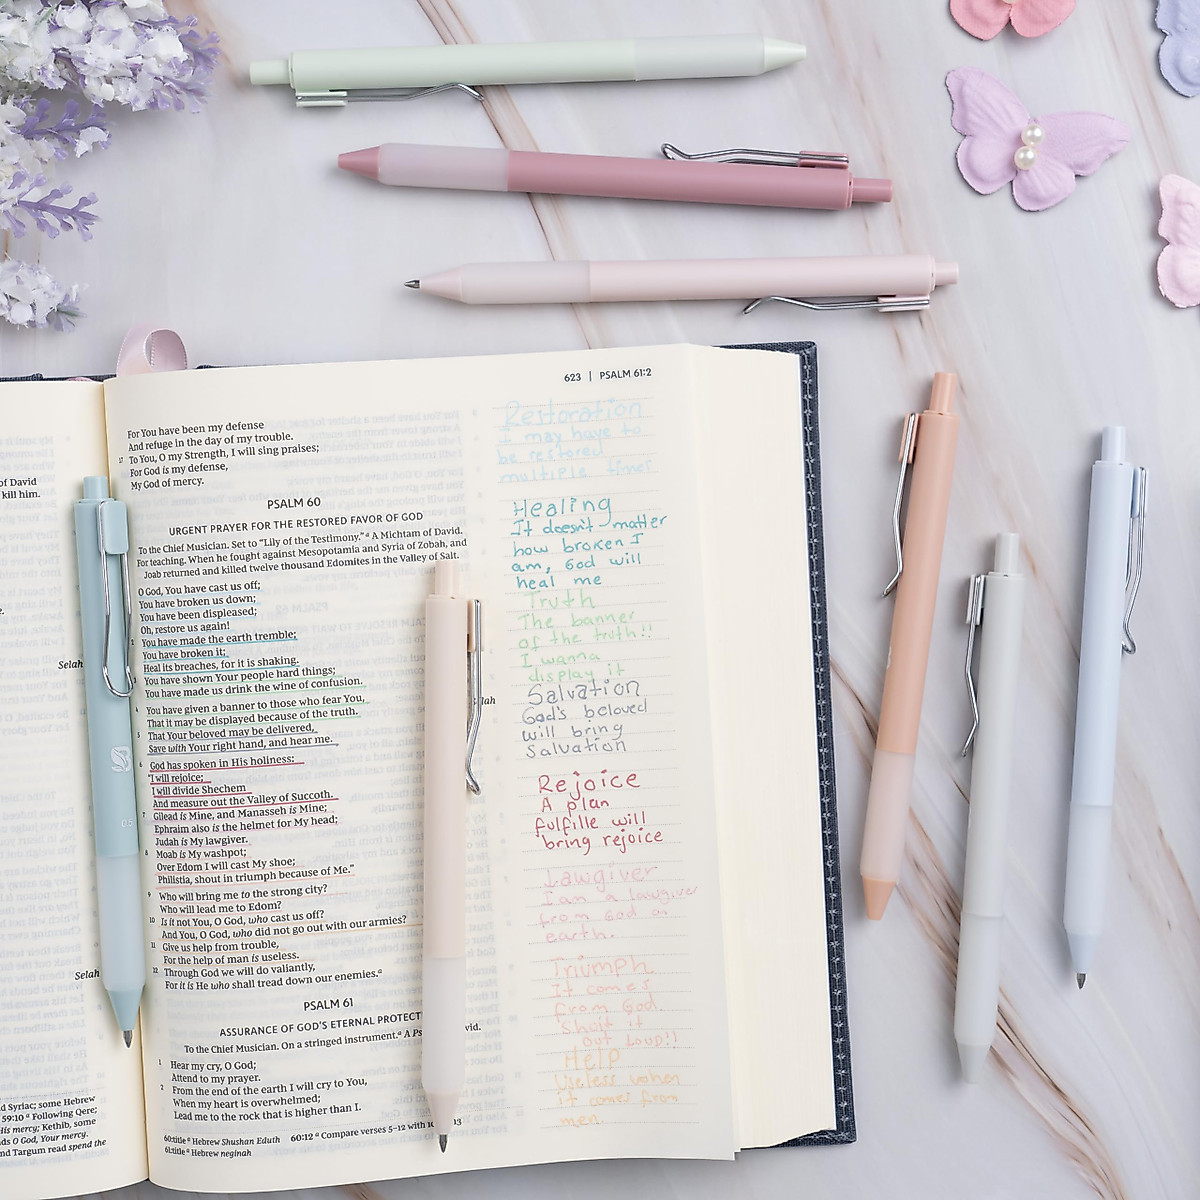 of David
kill him.
Selah
Selah
d Syriac; some Hebrew
59:10 ª Following Qere;
His mercy; Kethib, some
ds O God, Your mercy.
nd Targum read spend the
623 | PSALM 61:2
For You have been my defense
And refuge in the day of my trouble.
17 To You, O my Strength, I will sing praises;
For God is my defense,
My God of mercy.
PSALM 60
URGENT PRAYER FOR THE RESTORED FAVOR OF GOD
To the Chief Musician. Set to “Lily of the Testimony.”ª A Michtam of David.
For teaching. When he fought against Mesopotamia and Syria of Zobah, and
Joab returned and killed twelve thousand Edomites in the Valley of Salt.
O God, You have cast us off;
You have broken us down;
You have been displeased;
Oh, restore us again!
2 You have made the earth tremble;
You have broken it;
Heal its breaches, for it is shaking.
3 You have shown Your people hard things;
You have made us drink the wine of confusion.
4 You have given a banner to those who fear You,
That it may be displayed because of the truth.
5 That Your beloved may be delivered,
Save with Your right hand, and hear me.
6 God has spoken in His holiness:
“I will rejoice;
I will divide Shechem
And measure out the Valley of Succoth.
7 Gilead is Mine, and Manasseh is Mine;
Ephraim also is the helmet for My head;
Judah is My lawgiver.
8 Moab is My washpot;
Over Edom I will cast My shoe;
Philistia, shout in triumph because of Me.”
9 Who will bring me to the strong city?
Who will lead me to Edom?
10 Is it not You, O God, who cast us off?
And You, O God, who did not go out with our armies?
11 Give us help from trouble,
For the help of man is useless.
12 Through God we will do valiantly,
For it is He who shall tread down our enemies.ª
PSALM 61
ASSURANCE OF GOD’S ETERNAL PROTECT
To the Chief Musician. On a stringed instrument.ª A Ps vid.
1 Hear my cry, O God;
Attend to my prayer.
2 From the end of the earth I will cry to You,
When my heart is overwhelmed;
Lead me to the rock that is higher than I.
60:title ª Hebrew Shushan Eduth 60:12 ª Compare verses 5–12 with 13
61:title ª Hebrew neginah
lah
Restoration
I may have to
be restored
multiple times
Healing
It doesn't matter
how broken I
am, God will
heal me
Truth
The banner
of the truth!!
I wanna
display it
Salvation
God's beloved
will bring
Salvation
Rejoice
A plan
fulfille will
bring rejoice
Lawgiver
I am a lawgiver
from God on
earth.
Triumph
It comes
from God.
Shout it
out Loud!!
Help
Useless when
it comes from
men.
0.5